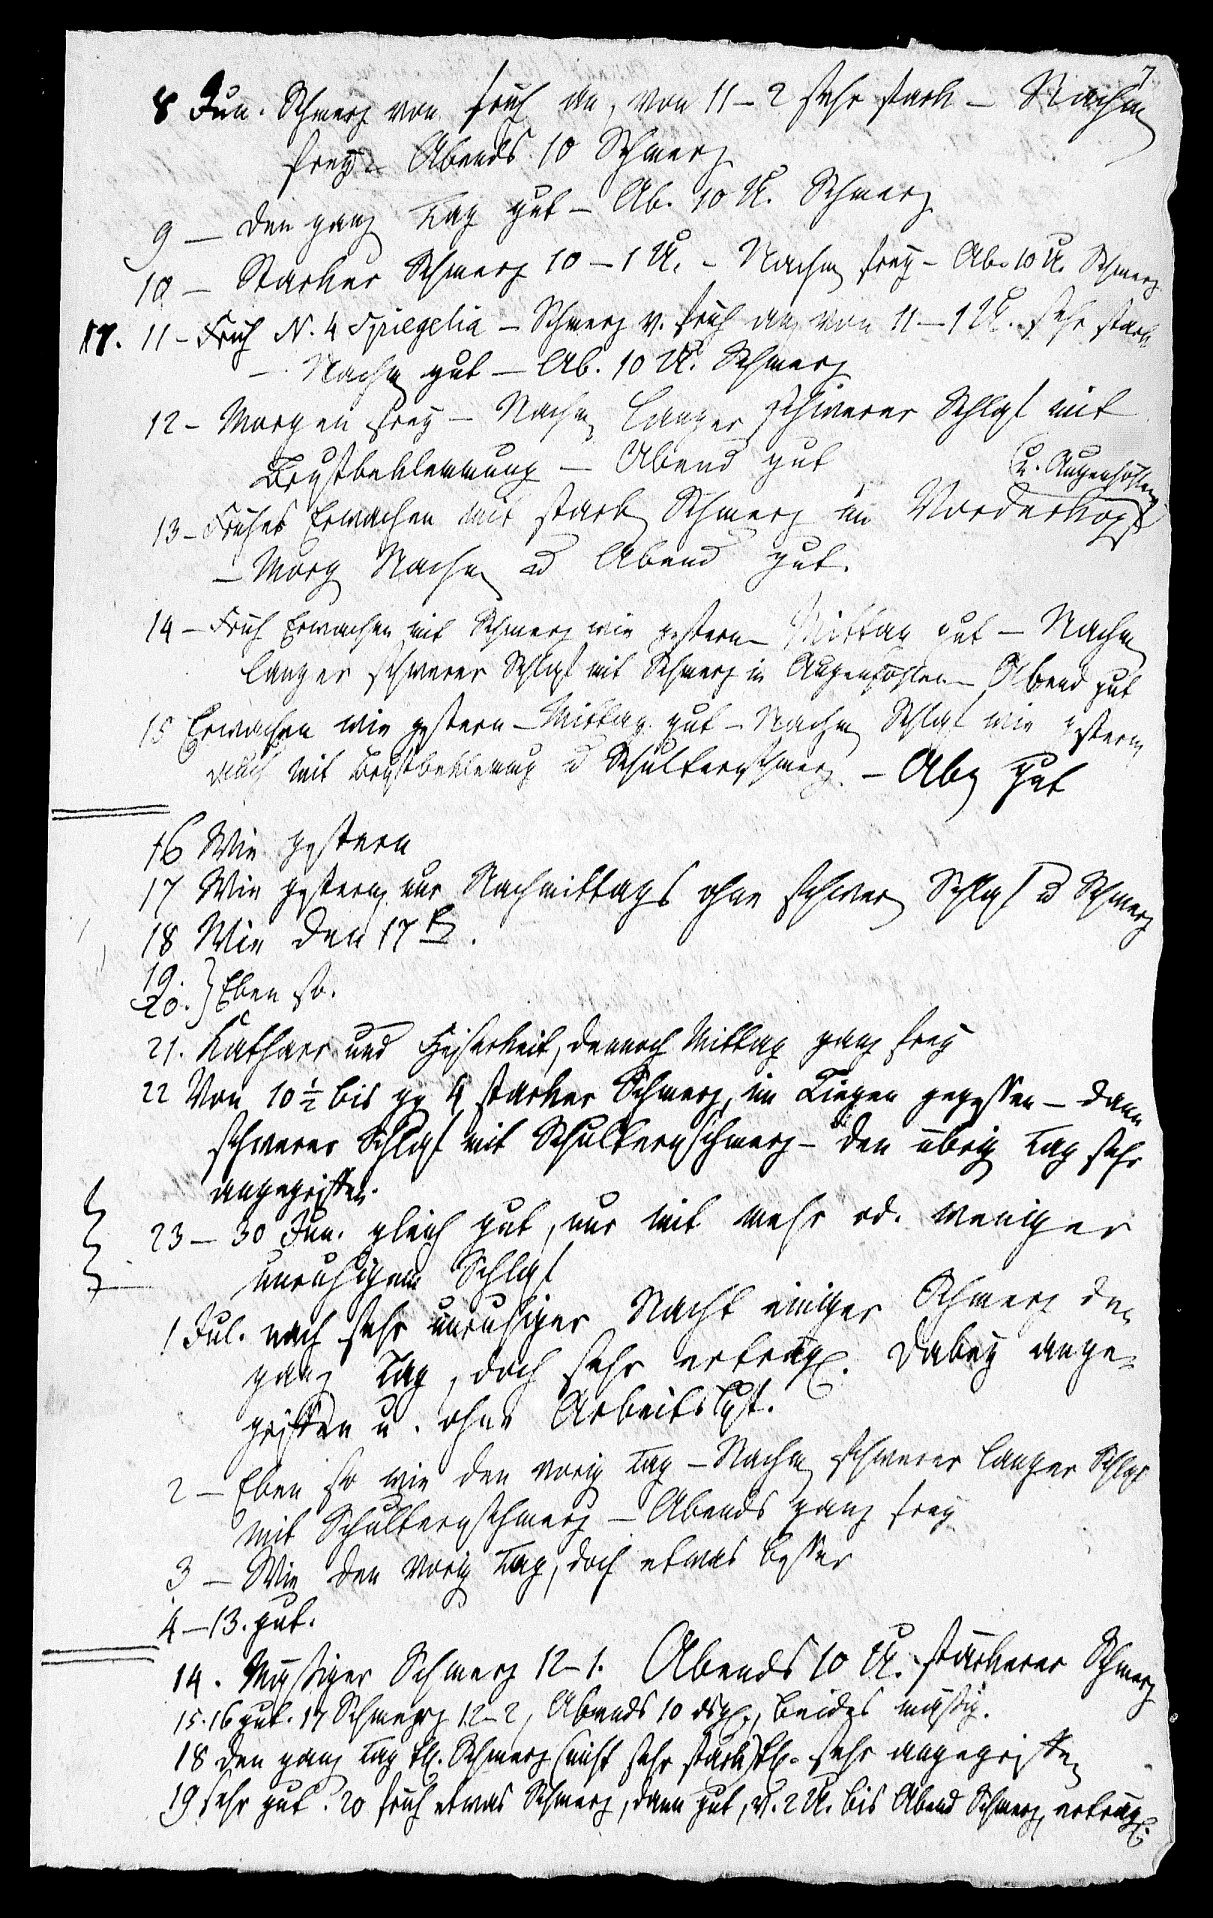 7
8 Jun. Schmerz von früh an, von 11–2 sehr stark – Nachm
frey – Abends 10 Schmerz
9 — den ganz Tag gut – Ab. 10 U. Schmerz
10 – Starker Schmerz 10–1 U. – Nachm frey – Ab. 10 U. Schmerz
11 – Früh N. 4 Spiegelia – Schmerz v. früh an, von 11–1 U. sehr stark
– Nachm gut – Ab. 10 U. Schmerz
12 – Morgen frey – Nachm langer schwerer Schlaf mit
Brustbeklemmung – Abend gut
u. Augenhöhlen
13 – Frühes Erwachen mit stark Schmerz im Vorderkopf
– Morg Nachm u Abend gut.
14 – Früh Erwachen mit Schmerz wie gestern – Mittag gut – Nachm
langer schwerer Schlaf mit Schmerz in Augenhöhlen – Abend gut
15 Erwachen wie gestern – Mittag gut – Nachm Schlaf wie gestern
auch mit Brustbeklemung u Schulternschmerz – Abe gut
16 Wie gestern
17 Wie gestern, nur Nachmittags ohne schwer Schlaf u Schmerz
18 Wie den 17t.
19.
20. } Eben so.
21. Katharr und Heiserkeit, dennoch Mittag ganz frey
22 Von 10 ½ bis gg 4 starker Schmerz, im Liegen gegessen – dann
schwerer Schlaf mit Schulternschmerz – den übrig Tag sehr
angegriffen.
23 – 30 Jun. gleich gut, nur mit mehr od. weniger
unruhigem Schlaf
1 Jul. nach sehr unruhiger Nacht einiger Schmerz den
ganz Tag, doch sehr erträgl. Dabey ange-
griffen u. ohne Arbeitslust.
2 – Eben so wie den vorig Tag – Nachm schwerer langer Schlaf
mit Schulternschmerz – Abends ganz frey
3 – Wie den vorig Tag, doch etwas besser
4–13. gut.
14. Mäßiger Schmerz 12–1. Abends 10 U. stärkerer Schmerz
15. 16 gut. 17 Schmerz 12–2, Abends 10 dsgl., beides mäßig.
18 den ganz Tag Schmerz (nicht sehr stark) sehr angegriffen
19 sehr gut. 20 früh etwas Schmerz, dann gut, v. 2 U. bis Abend Schmerz, erträgl.